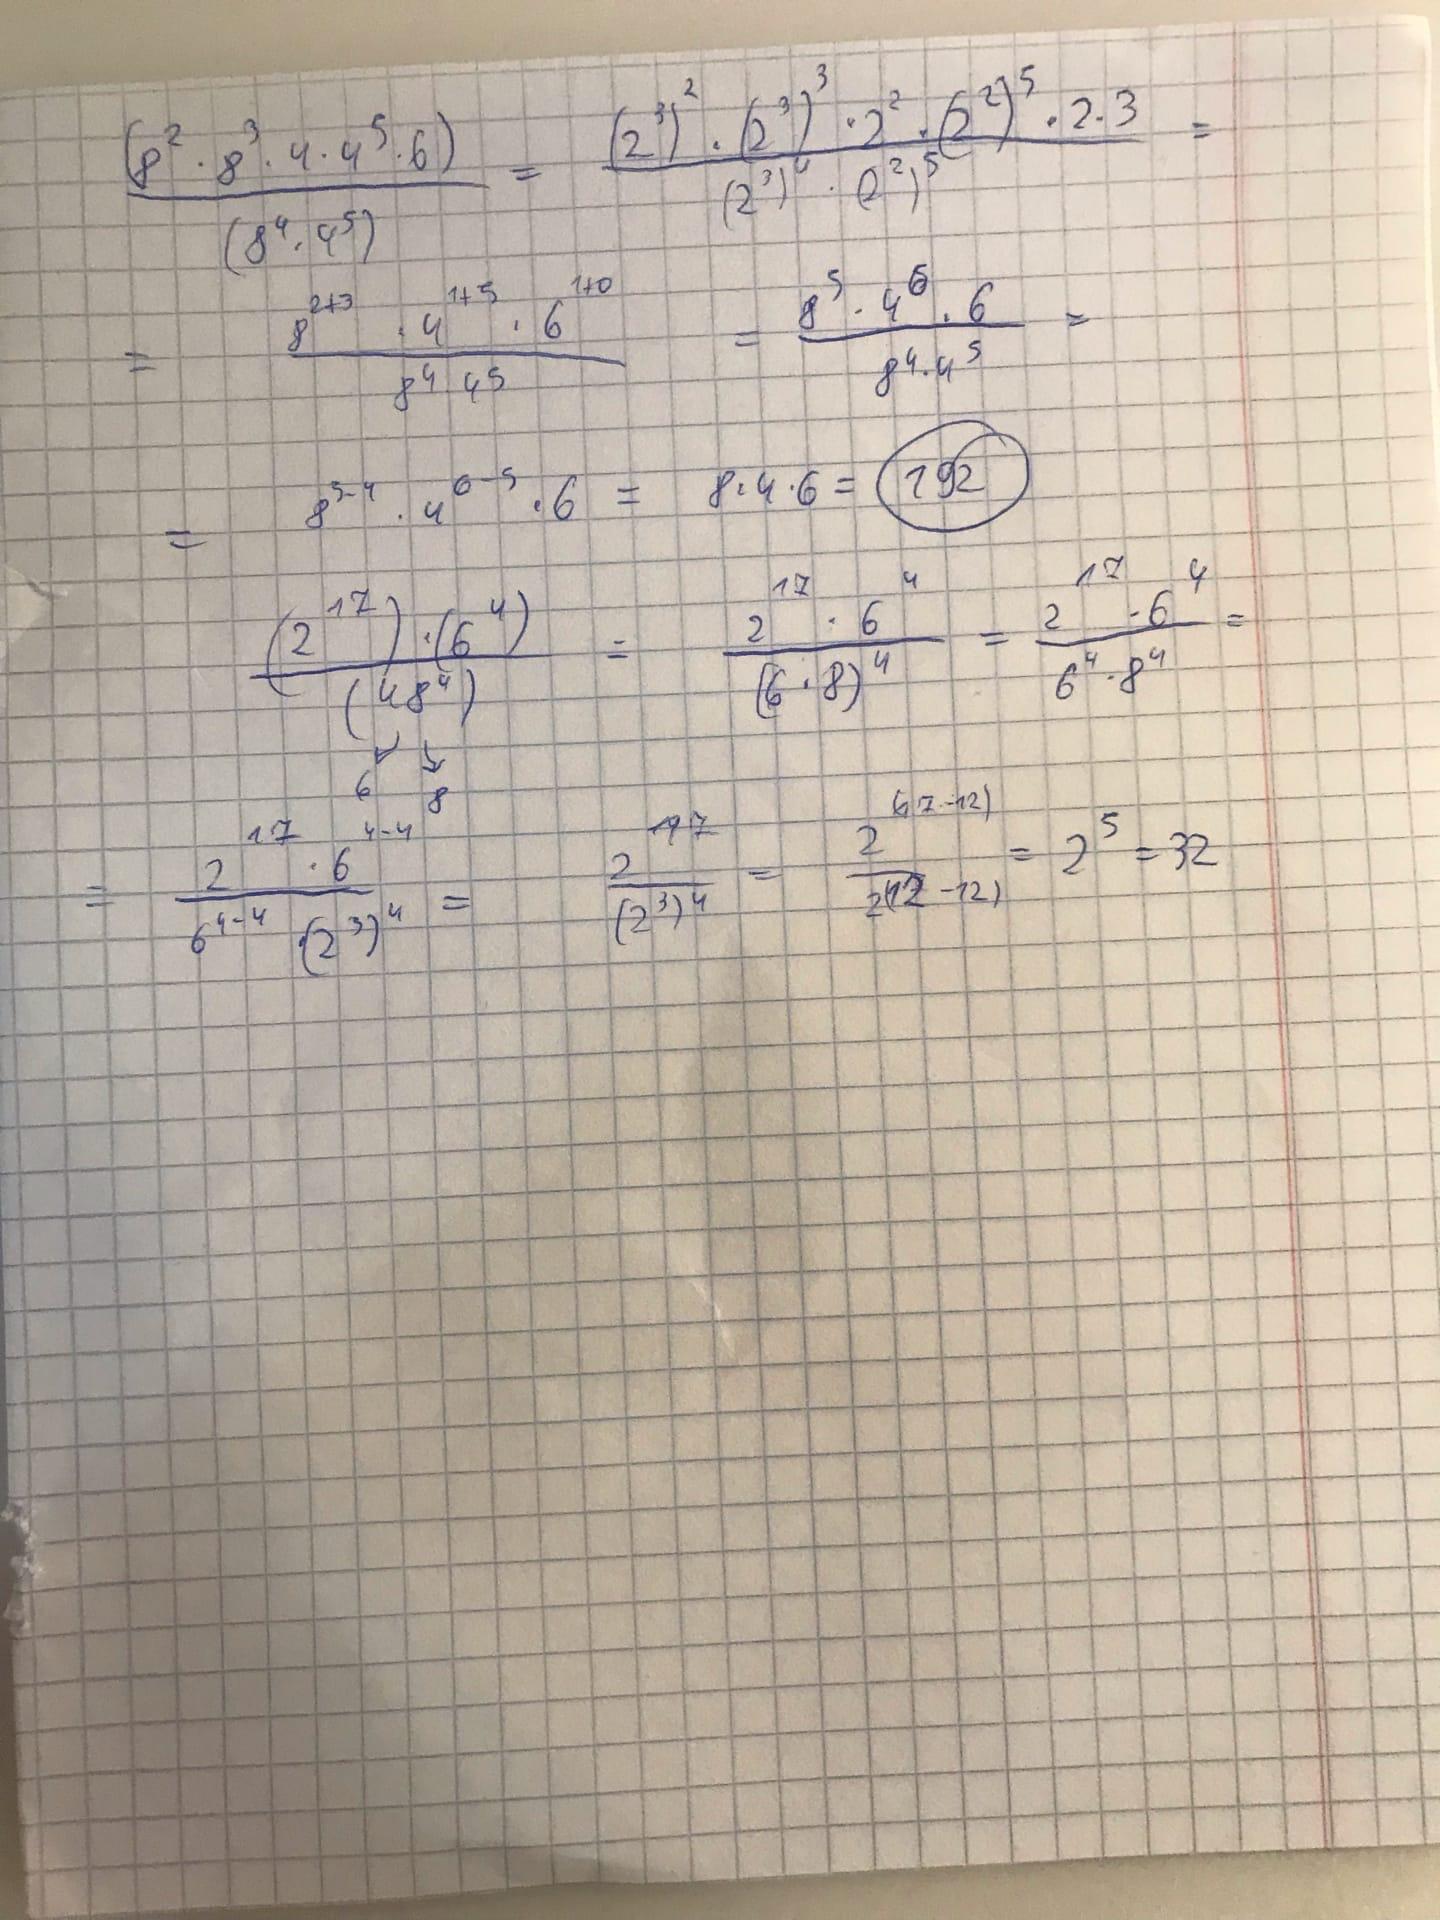 (8² · 8³ · 4 · 4⁵ · 6) / (8⁴ · 4⁵) = (2³)² · (2³)³ · 2² · (2²)⁵ · 2 · 3 / (2³)⁴ · (2²)⁵ =
= 8²⁺³ · 4¹⁺⁵ · 6¹⁺⁰ / 8⁴ 4⁵ = 8⁵ · 4⁶ · 6 / 8⁴ · 4⁵ =
= 8⁵⁻⁴ · 4⁶⁻⁵ · 6 = 8 · 4 · 6 = 192
(2¹⁷) · (6⁴) / (48⁴) = 2¹⁷ · 6⁴ / (6 · 8)⁴ = 2¹⁷ · 6⁴ / 6⁴ · 8⁴ =
6 8
= 2¹⁷ · 6⁴⁻⁴ / 6⁴⁻⁴ · (2³)⁴ = 2¹⁷ / (2³)⁴ = 2⁽¹⁷⁻¹²⁾ / 2⁽¹²⁻¹²⁾ = 2⁵ = 32